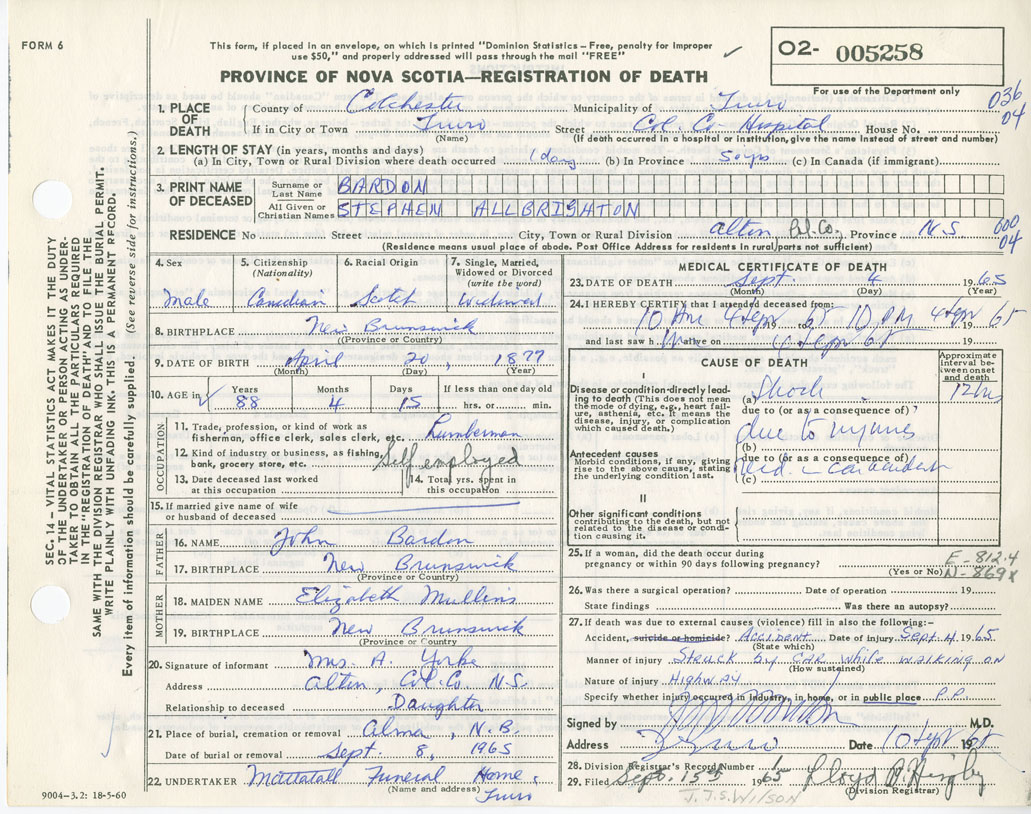 FORM 6
This form, if placed in an envelope, on which is printed "Dominion Statistics—Free, penalty for improper
use $50," and properly addressed will pass through the mail "FREE"
O2- 005258
PROVINCE OF NOVA SCOTIA—REGISTRATION OF DEATH
For use of the Department only
036
04
1. PLACE OF DEATH
County of Colchester Municipality of Truro
If in City or Town Truro Street Col. Co Hospital House No.
(Name) (If death occurred in a hospital or institution, give the name instead of street and number)
2. LENGTH OF STAY (in years, months and days)
(a) In City, Town or Rural Division where death occurred 1 day (b) In Province 50 yrs (c) In Canada (if immigrant)
3. PRINT NAME OF DECEASED
Surname or Last Name BARDON
All Given or Christian Names STEPHEN ALLBRIGHTON
RESIDENCE No Street City, Town or Rural Division Alton Col. Co. Province N.S
000
04
(Residence means usual place of abode. Post Office Address for residents in rural parts not sufficient)
4. Sex
Male
5. Citizenship
(Nationality)
Canadian
6. Racial Origin
Scotch
7. Single, Married,
Widowed or Divorced
(write the word)
Widowed
8. BIRTHPLACE New Brunswick
(Province or Country)
9. DATE OF BIRTH April 20, 1877
(Month) (Day) (Year)
10. AGE in
Years 88
Months 4
Days 15
If less than one day old
hrs. or min.
OCCUPATION
11. Trade, profession, or kind of work as
fisherman, office clerk, sales clerk, etc. Lumberman
12. Kind of industry or business, as fishing,
bank, grocery store, etc. Self employed
13. Date deceased last worked
at this occupation
14. Total yrs. spent in
this occupation
15. If married give name of wife
or husband of deceased
FATHER
16. NAME John Bardon
17. BIRTHPLACE New Brunswick
(Province or Country)
MOTHER
18. MAIDEN NAME Elizabeth Mullins
19. BIRTHPLACE New Brunswick
(Province or Country)
20. Signature of informant Mrs. A. Yorke
Address Alton, Col. Co. N.S.
Relationship to deceased Daughter
21. Place of burial, cremation or removal Alma, N.B.
Date of burial or removal Sept. 8, 1965
22. UNDERTAKER Mattatall Funeral Home,
(Name and address) Truro
MEDICAL CERTIFICATE OF DEATH
23. DATE OF DEATH Sept. 4 1965
(Month) (Day) (Year)
24. I HEREBY CERTIFY that I attended deceased from:
10 AM 4 Sept 1965 to 10 PM 4 Sept 1965
and last saw him alive on 4 Sept 65 19
CAUSE OF DEATH
Approximate
interval be-
tween onset
and death
I
Disease or condition directly lead-
ing to death (This does not mean
the mode of dying, e.g., heart fail-
ure, asthenia, etc. It means the
disease, injury, or complication
which caused death.)
(a) Shock 12 hrs
due to (or as a consequence of)
due to injuries
(b)
Antecedent causes
Morbid conditions, if any, giving
rise to the above cause, stating
the underlying condition last.
due to (or as a consequence of)
rec'd in car accident
(c)
II
Other significant conditions
contributing to the death, but not
related to the disease or condi-
tion causing it.
25. If a woman, did the death occur during
pregnancy or within 90 days following pregnancy?
(Yes or No)
E-812.4
N-869x
26. Was there a surgical operation? Date of operation 19
State findings Was there an autopsy?
27. If death was due to external causes (violence) fill in also the following:—
Accident, suicide or homicide? ACCIDENT Date of injury Sept 4 1965
(State which)
Manner of injury STRUCK by CAR While WALKING ON
(How sustained)
Nature of injury HIGHWAY
Specify whether injury occurred in industry, in home, or in public place P.P.
Signed by M.D.
Address Truro Date 10 Sept 1965
28. Division Registrar's Record Number
29. Filed Sept. 15th 1965 Lloyd
(Division Registrar)
J.J.S. WILSON
9004-3.2: 18-5-60
SEC. 14—VITAL STATISTICS ACT MAKES IT THE DUTY
OF THE UNDERTAKER OR PERSON ACTING AS UNDER-
TAKER TO OBTAIN ALL THE PARTICULARS REQUIRED
IN THE "REGISTRATION OF DEATH" AND FILE THE
SAME WITH THE DIVISION REGISTRAR WHO SHALL ISSUE THE BURIAL PERMIT.
WRITE PLAINLY WITH UNFADING INK. THIS IS A PERMANENT RECORD.
Every item of information should be carefully supplied. (See reverse side for instructions.)